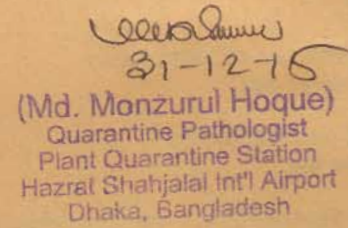 31-12-15
(Md. Monzurul Hoque)
Quarantine Pathologist
Plant Quarantine Station
Hazrat Shahjalal Int'l Airport
Dhaka, Bangladesh